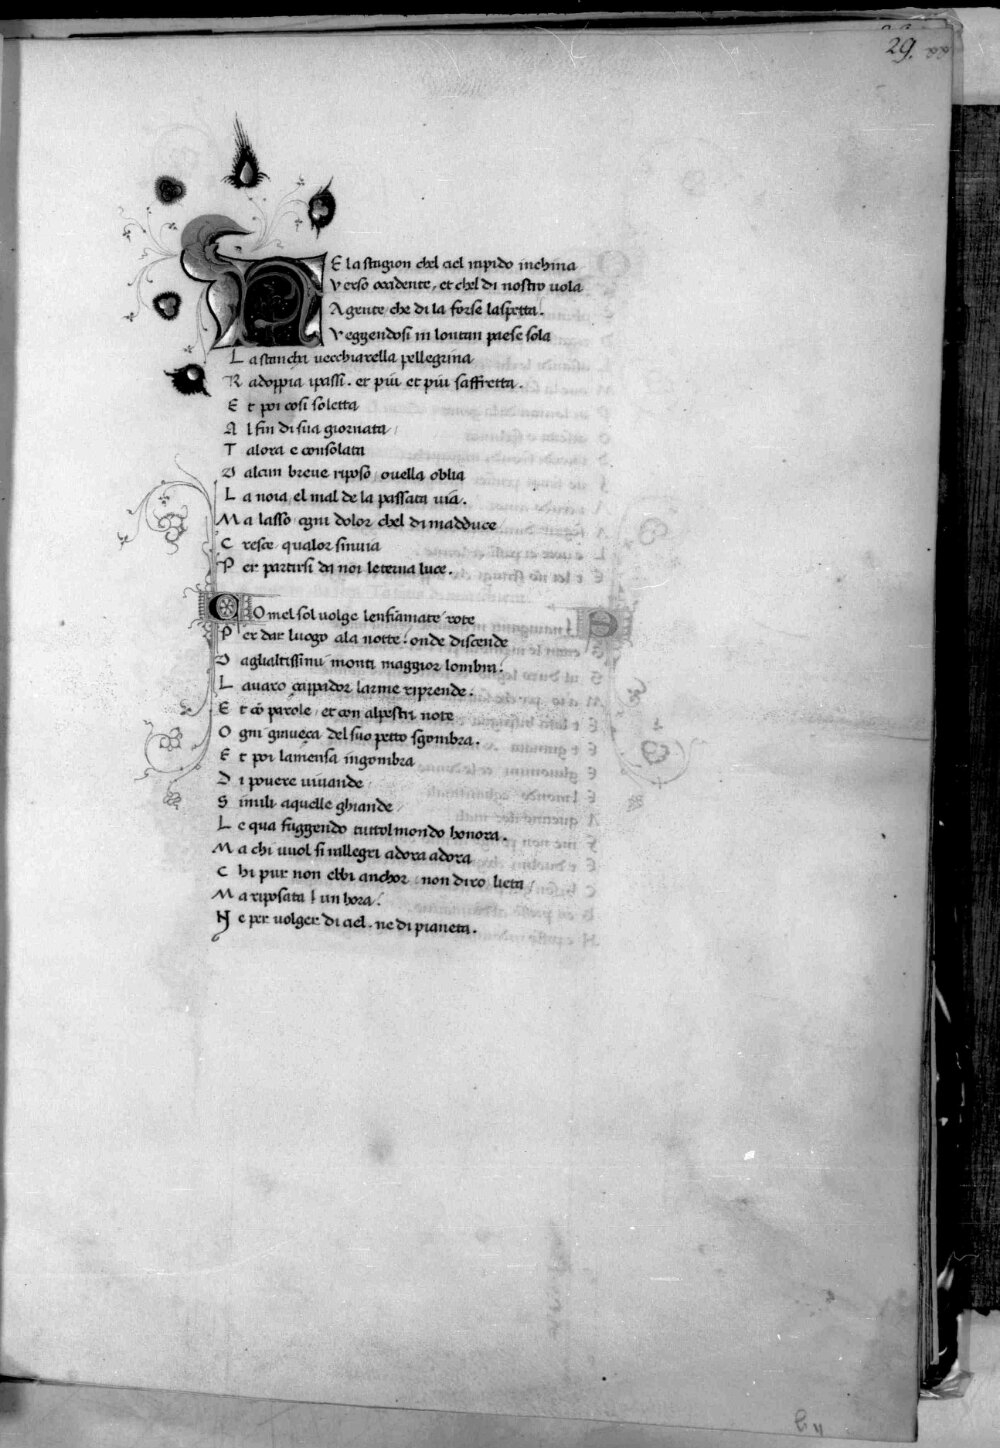 29.
NE la stagion chel ciel rapido inchina
Verso occidente, et chel di nostro uola
A gente, che di la forse laspetta.
Veggendosi in lontan paese sola
La stancha uecchiarella pellegrina
Radoppia ipassi. et piu et piu saffretta.
Et poi cosi soletta
Al fin di sua giornata
Talora e consolata
Dalcun breue riposo, ouella oblia
La noia, el mal de la passata uia.
Ma lasso ogni dolor chel di madduce
Cresce qualor sinuia
Per partirsi da noi leterna luce.
COmel sol uolge lenfiamate rote
Per dar luogo ala notte, onde discende
Daglialtissimi monti maggior lombra.
Lauaro çappador larme riprende.
Et cõ parole, et con alpestri note
Ogni graueça del suo petto sgombra.
Et poi lamensa ingombra
Di pouere uiuande
Simili aquelle ghiande
Le qua fuggendo tuttol mondo honora.
Ma chi uuol si rallegri adora adora
Chi pur non ebbi anchor, non diro lieta
Ma riposata un hora.
Ne per uolger di ciel. ne di pianeta.